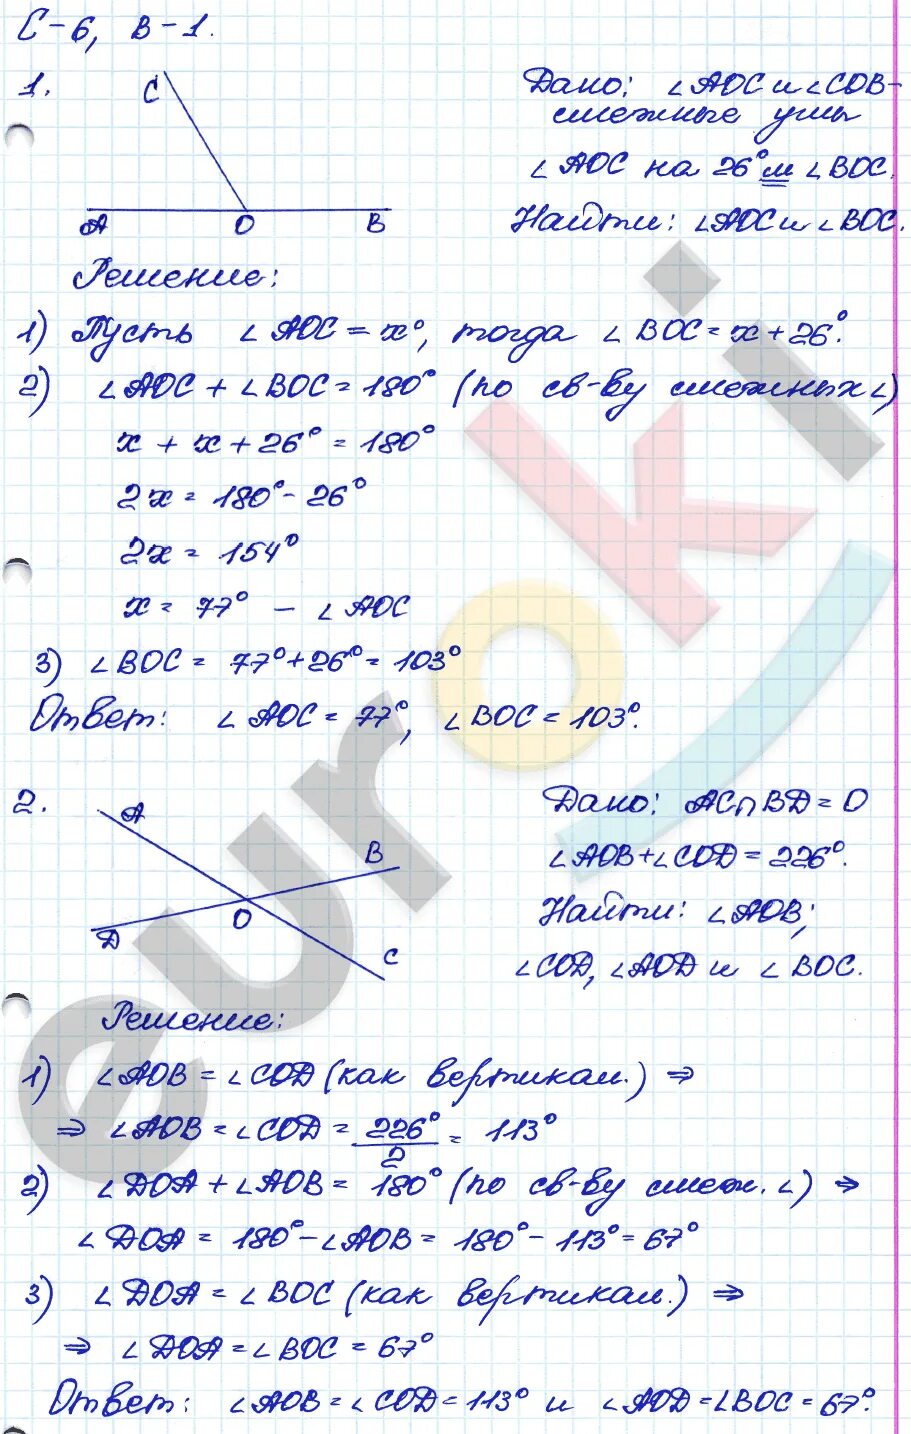 С-6, В-1.
1.
C
A O B
Дано: ∠AOC и ∠COB-
смежные углы
∠AOC на 26° м ∠BOC.
Найти: ∠AOC и ∠BOC.
Решение:
1) Пусть ∠AOC = x°, тогда ∠BOC = x + 26°.
2) ∠AOC + ∠BOC = 180° (по св-ву смежных ∠)
x + x + 26° = 180°
2x = 180° - 26°
2x = 154°
x = 77° - ∠AOC
3) ∠BOC = 77° + 26° = 103°
Ответ: ∠AOC = 77°, ∠BOC = 103°.
2.
A
B
O
D
C
Дано: AC∩BD = O
∠AOB + ∠COD = 226°.
Найти: ∠AOB;
∠COD, ∠AOD и ∠BOC.
Решение:
1) ∠AOB = ∠COD (как вертикал.) ⇒
⇒ ∠AOB = ∠COD = 226°/2 = 113°
2) ∠DOA + ∠AOB = 180° (по св-ву смеж. ∠) ⇒
∠DOA = 180° - ∠AOB = 180° - 113° = 67°
3) ∠DOA = ∠BOC (как вертикал.) ⇒
⇒ ∠DOA = ∠BOC = 67°
Ответ: ∠AOB = ∠COD = 113° и ∠AOD = ∠BOC = 67°.
euroki